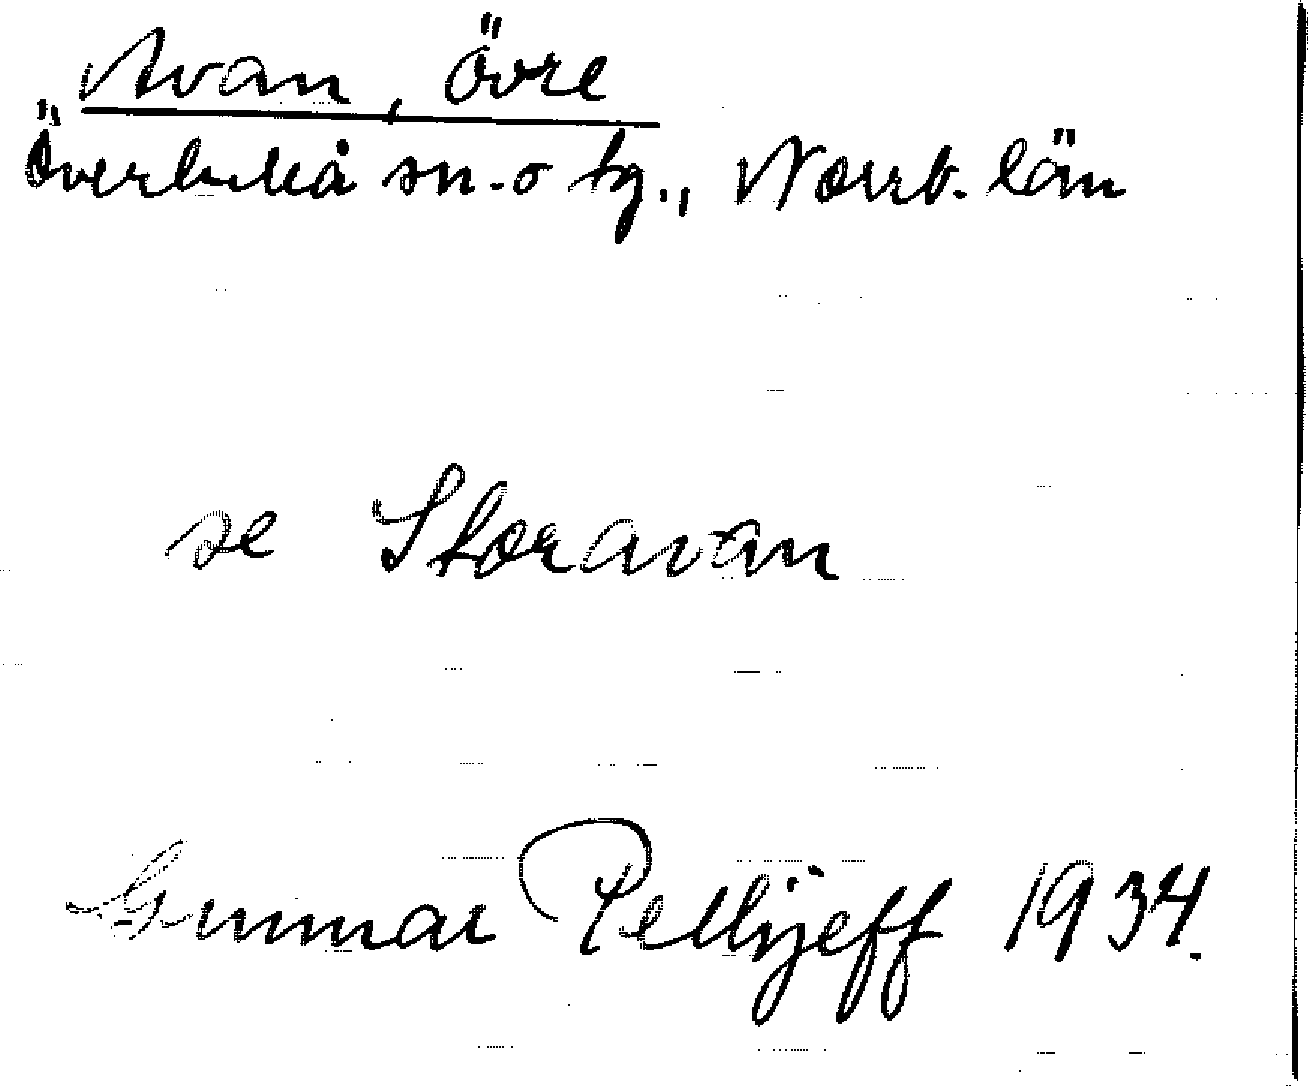 Avan, Övre
Överluleå sn. o tg., Norrb. län
se Storavan
Gunnar Pellijeff 1934.